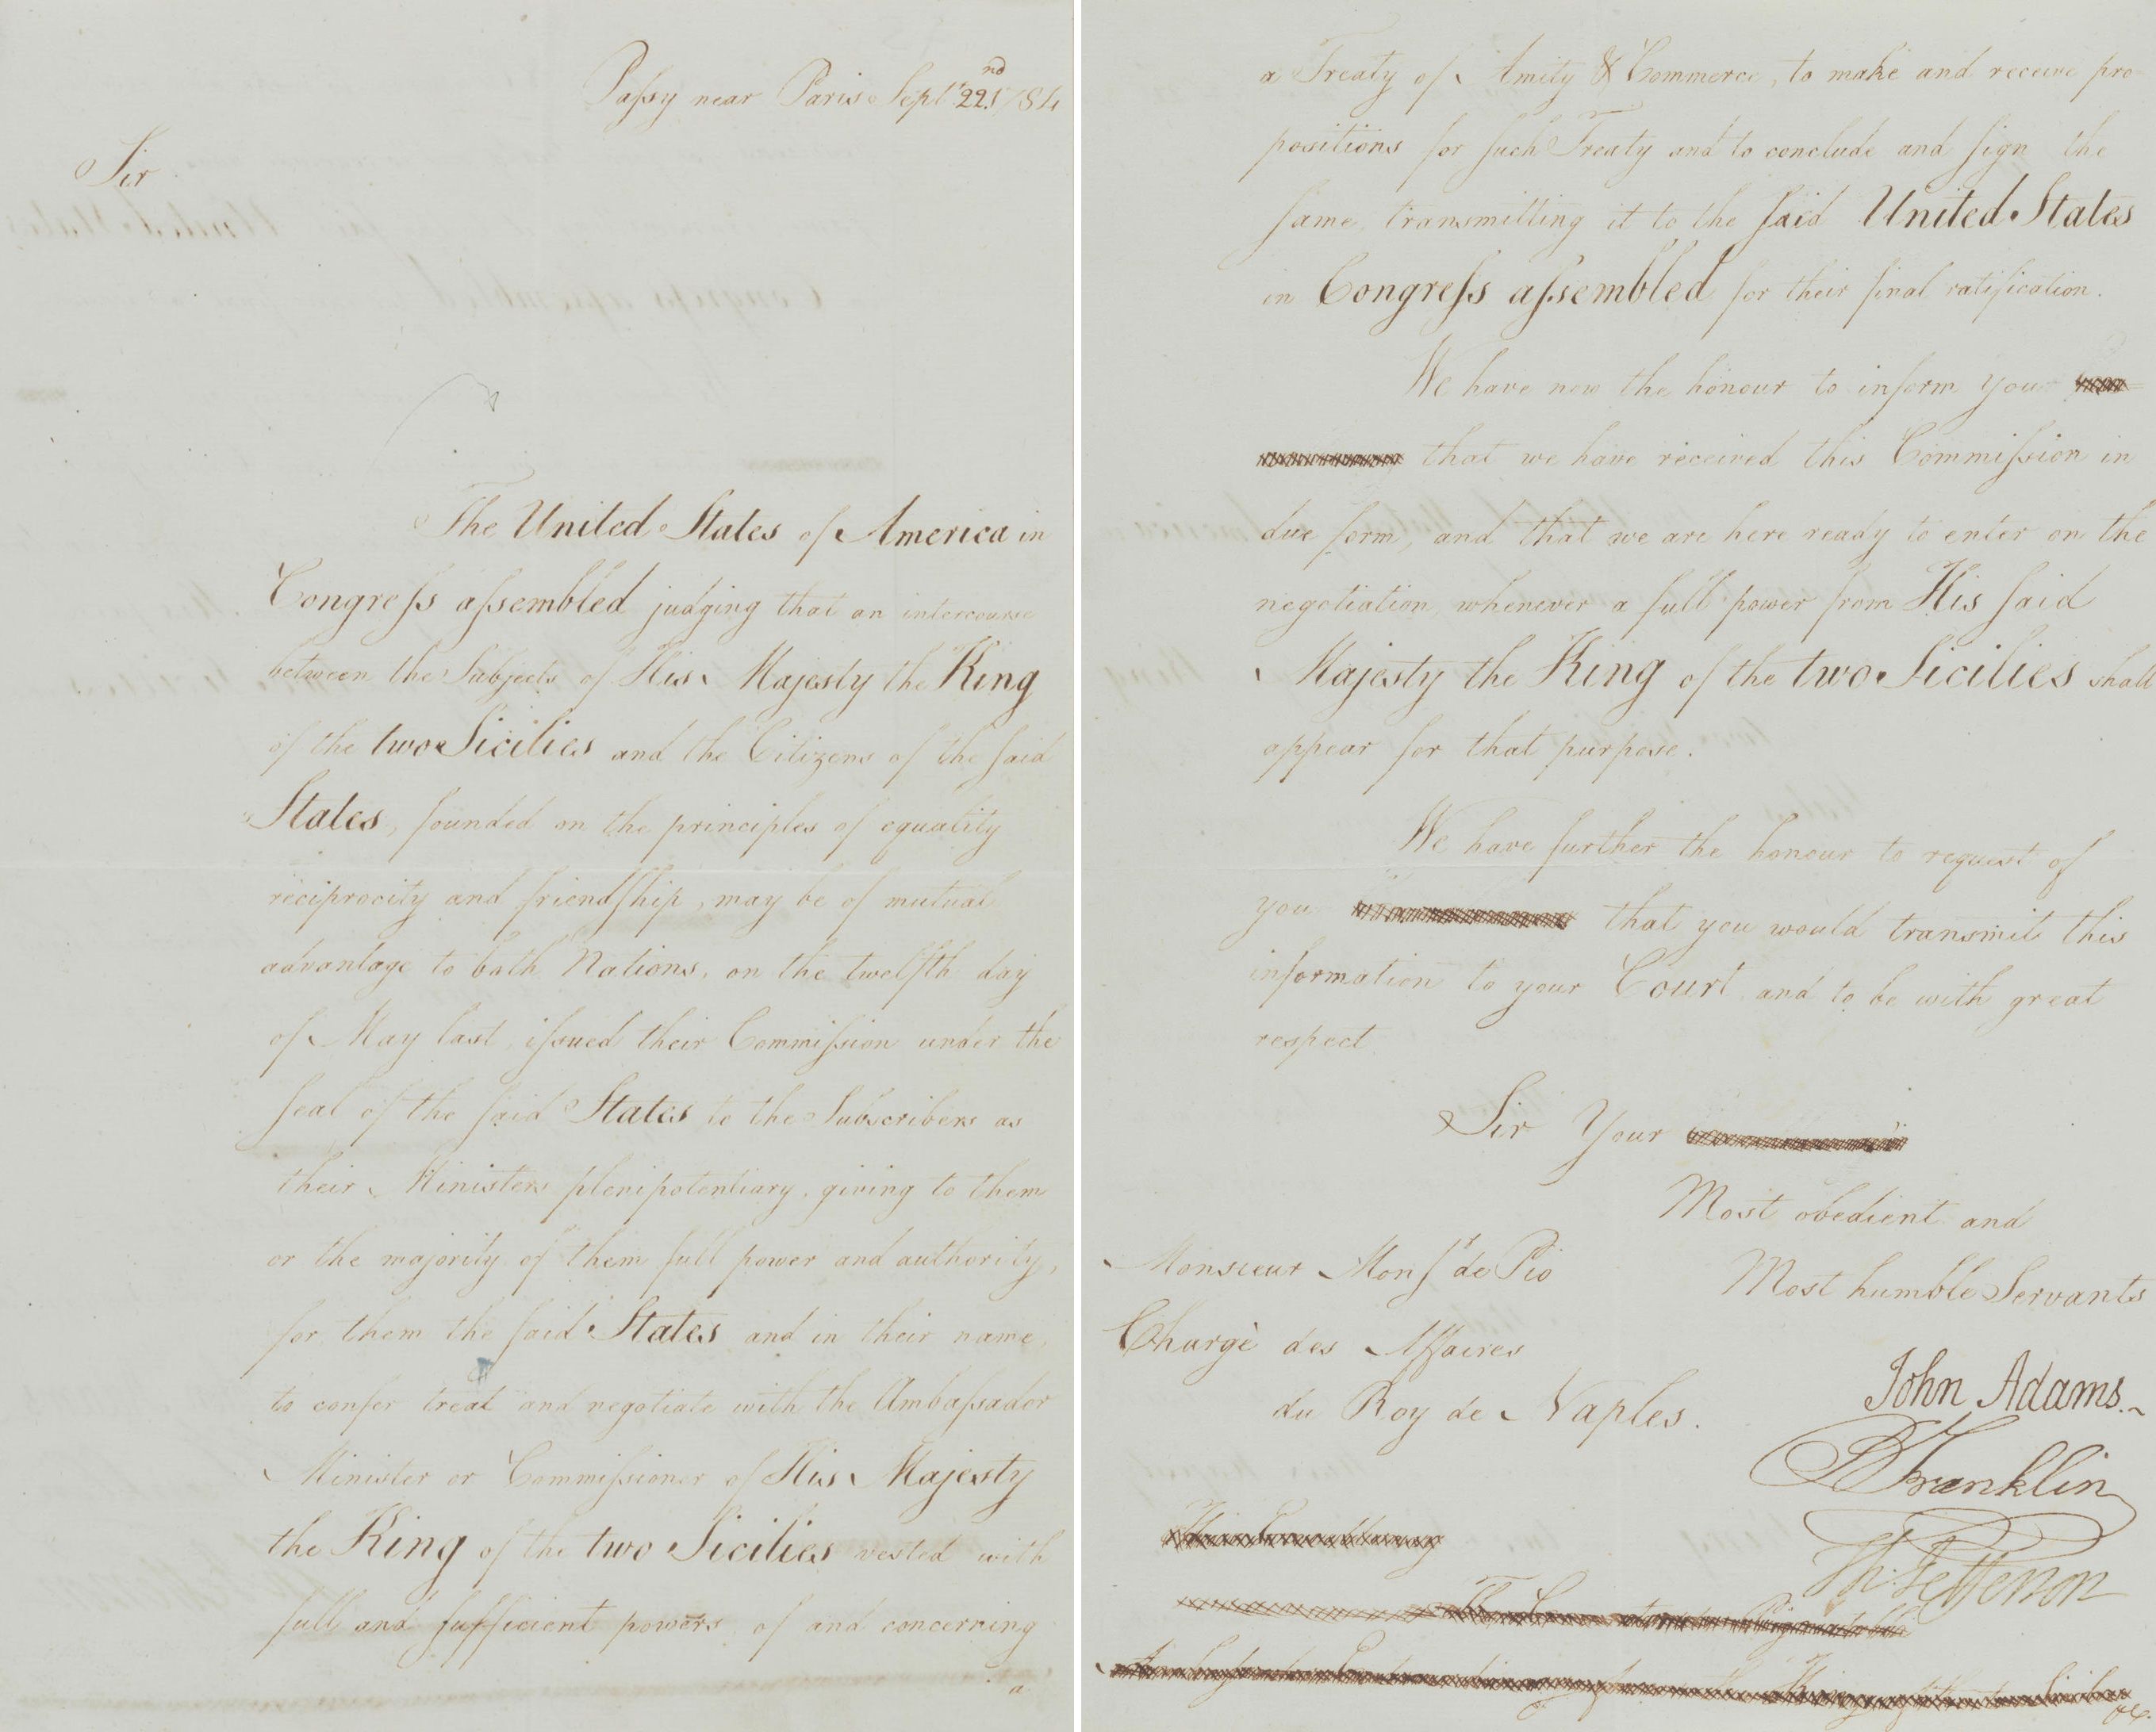 Passy near Paris Sept.r 22.nd 1784
Sir
The United States of America in
Congress assembled judging that an intercourse
between the Subjects of His Majesty the King
of the two Sicilies and the Citizens of the said
States, founded on the principles of equality
reciprocity and friendship, may be of mutual
advantage to both Nations, on the twelfth day
of May last, issued their Commission under the
seal of the said States to the Subscribers as
their Ministers plenipotentiary, giving to them
or the majority of them full power and authority,
for them the said States and in their name,
to confer treat and negotiate with the Ambassador
Minister or Commissioner of His Majesty
the King of the two Sicilies vested with
full and sufficient powers of and concerning
a
a Treaty of Amity & Commerce, to make and receive pro-
positions for such Treaty and to conclude and sign the
same, transmitting it to the said United States
in Congress assembled for their final ratification.
We have now the honour to inform you
that we have received this Commission in
due form, and that we are here ready to enter on the
negotiation, whenever a full power from His said
Majesty the King of the two Sicilies shall
appear for that purpose.
We have further the honour to request of
you that you would transmit this
information to your Court, and to be with great
respect
Sir Your
Most obedient and
Most humble Servants
Monsieur Mons.r de Pio
Chargé des Affaires
du Roy de Naples.
John Adams.
B Franklin
Th: Jefferson